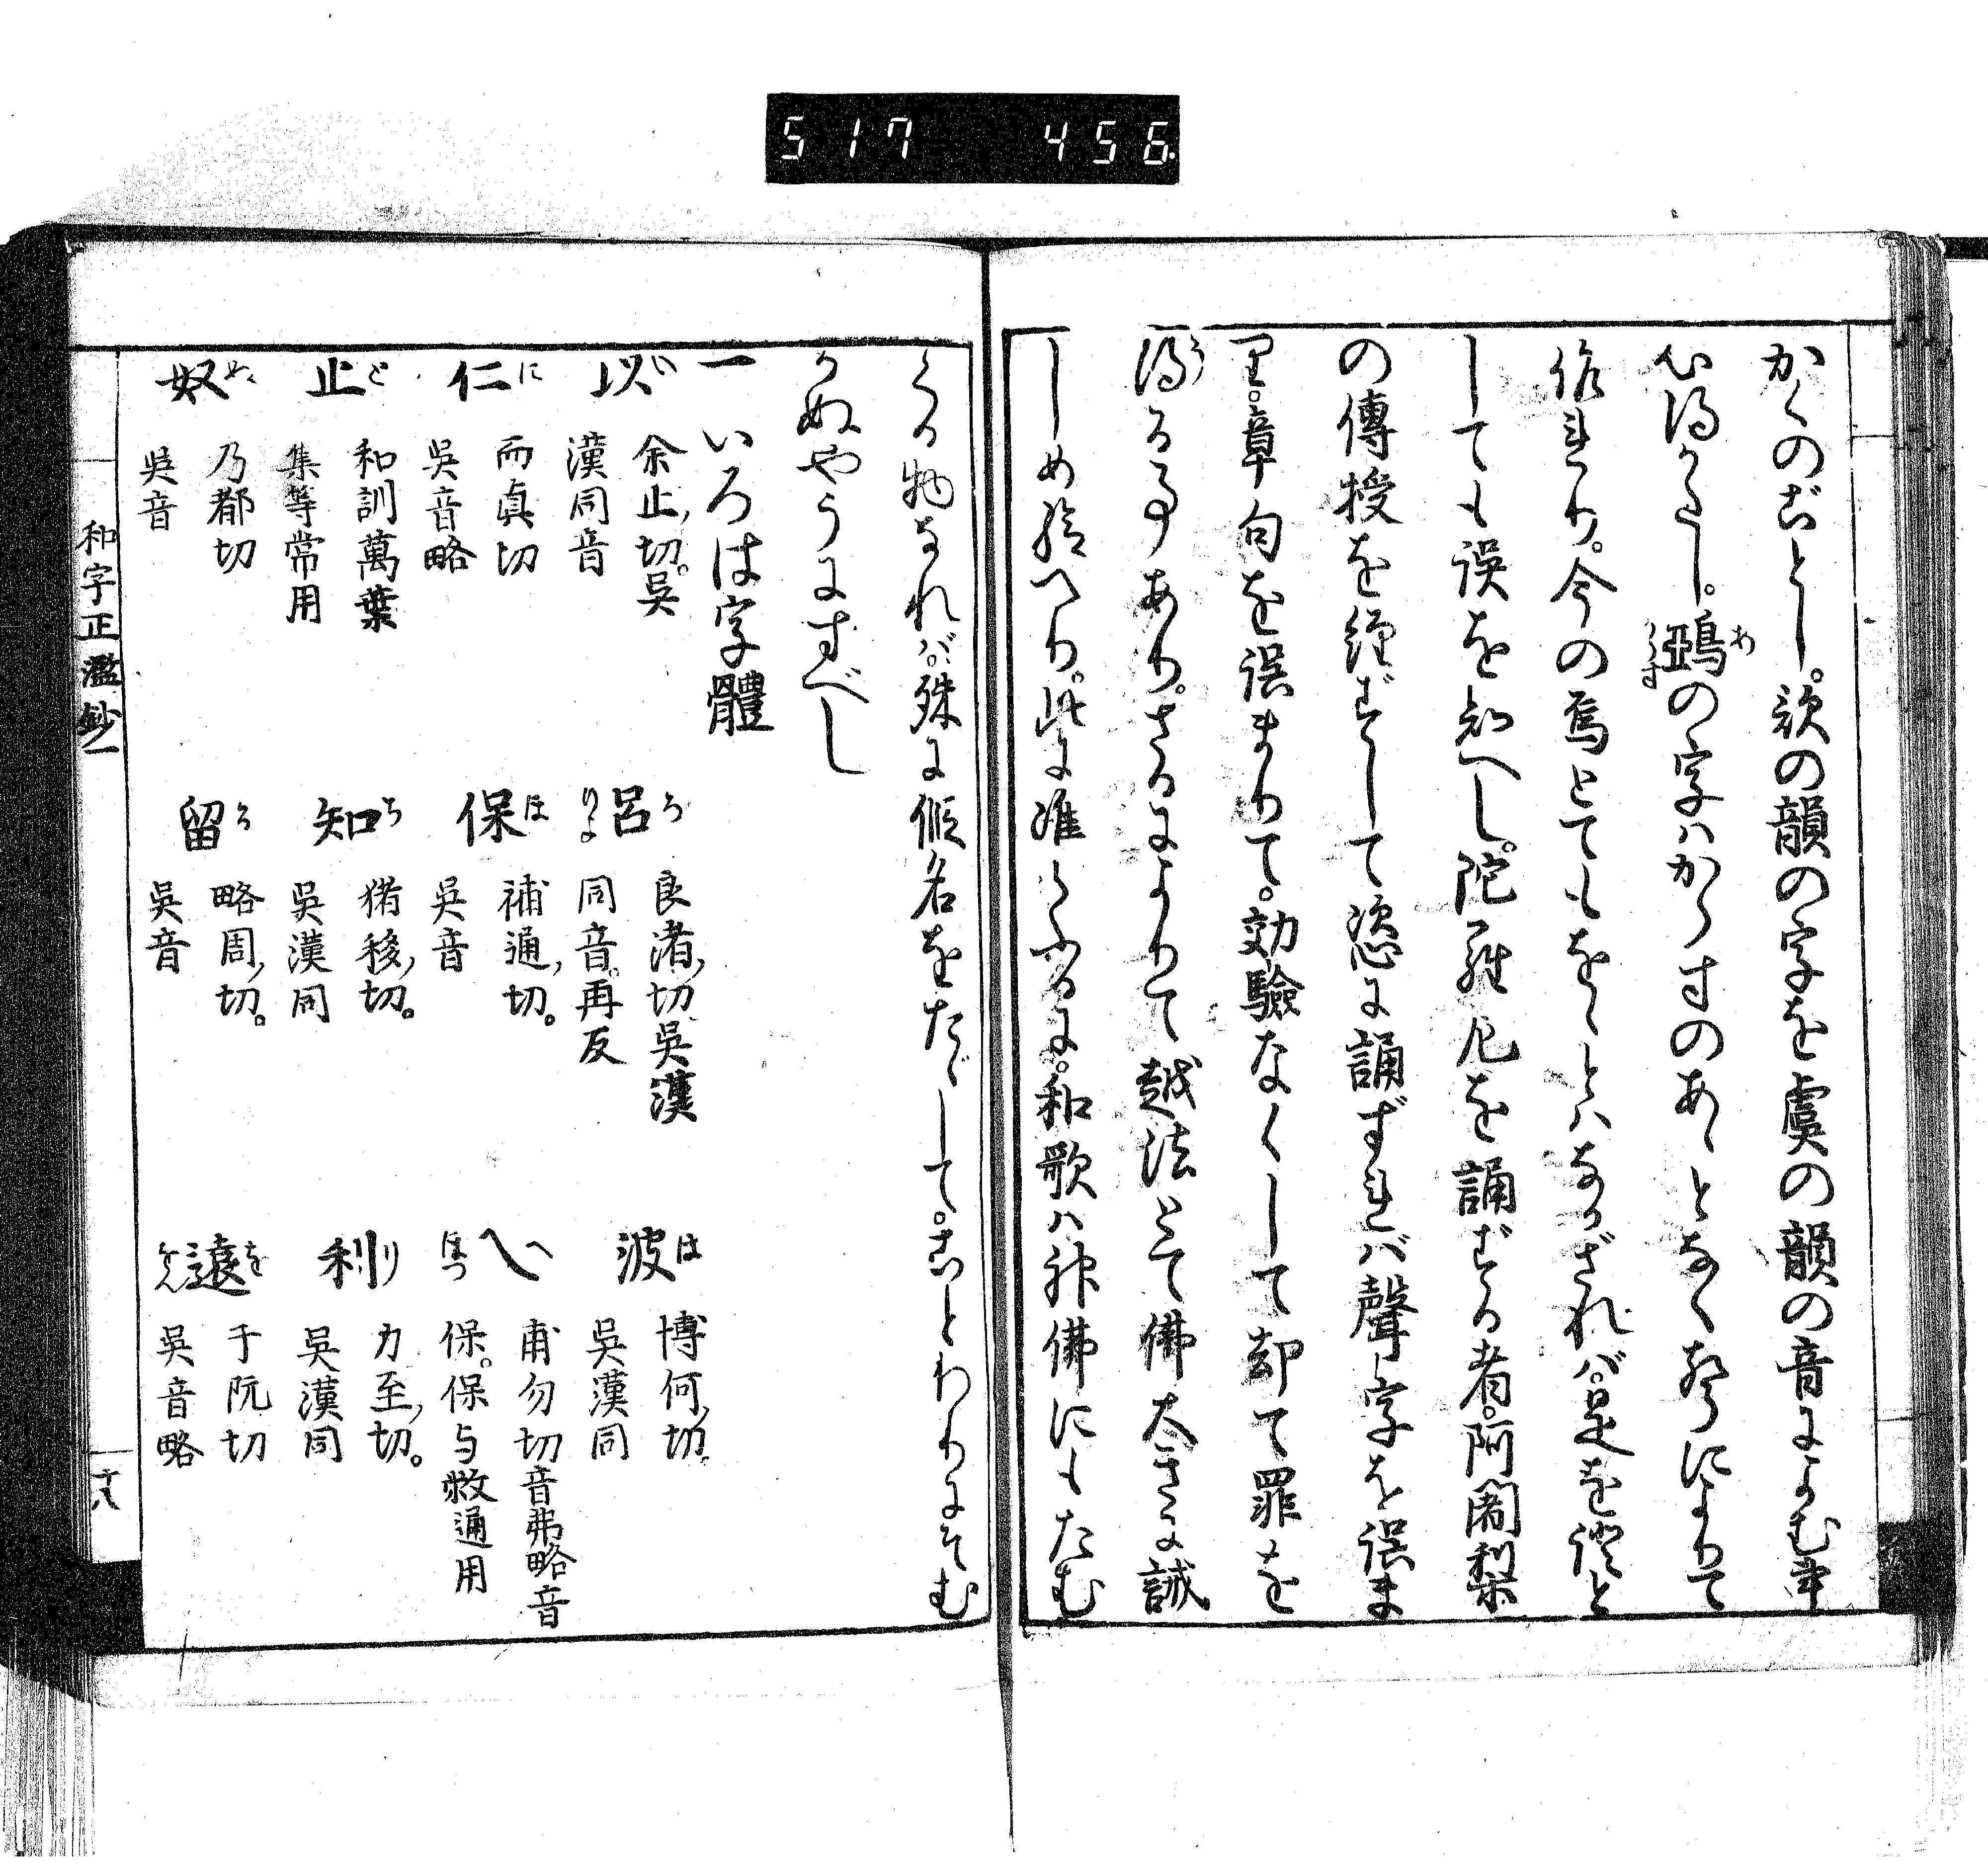 517 456
かくのごとし。歌の韻の字を虞の韻の音によむ事
心得がたし。鵶の字ハからすのあゝとなく聲によりて
作れり。今の焉とてもをゝとハなかざれバ。是を證と
しても誤を知へし。陀羅尼を誦ずる者。阿闍梨
の傳授を經ずして恣に誦ずれバ聲字を誤ま
り。章句を誤まりて。効驗なくして却て罪を
得る事あり。さるによりて越法とて佛大きに誡
しめ給へり。此に准らふるに。和歌ハ神佛にもたむ
くる物なれバ。殊に假名をたゞして。ことわりにそむ
かぬやうにすべし
一 いろは字體
以 い 余止切。吳漢同音
呂 ろ りよ 良渚切吳漢同音。再反
波 は 博何切。吳漢同
仁 に 而眞切吳音略
保 ほ 補通切。吳音
へ ほつ 甫勿切音弗略音保。保与敷通用
止 と 和訓萬葉集等常用
知 ち 猪移切。吳漢同
利 り 力至切。吳漢同
奴 ぬ 乃都切吳音
留 る 略周切。吳音
遠 を をん 于阮切吳音略
和字正濫鈔一
十八